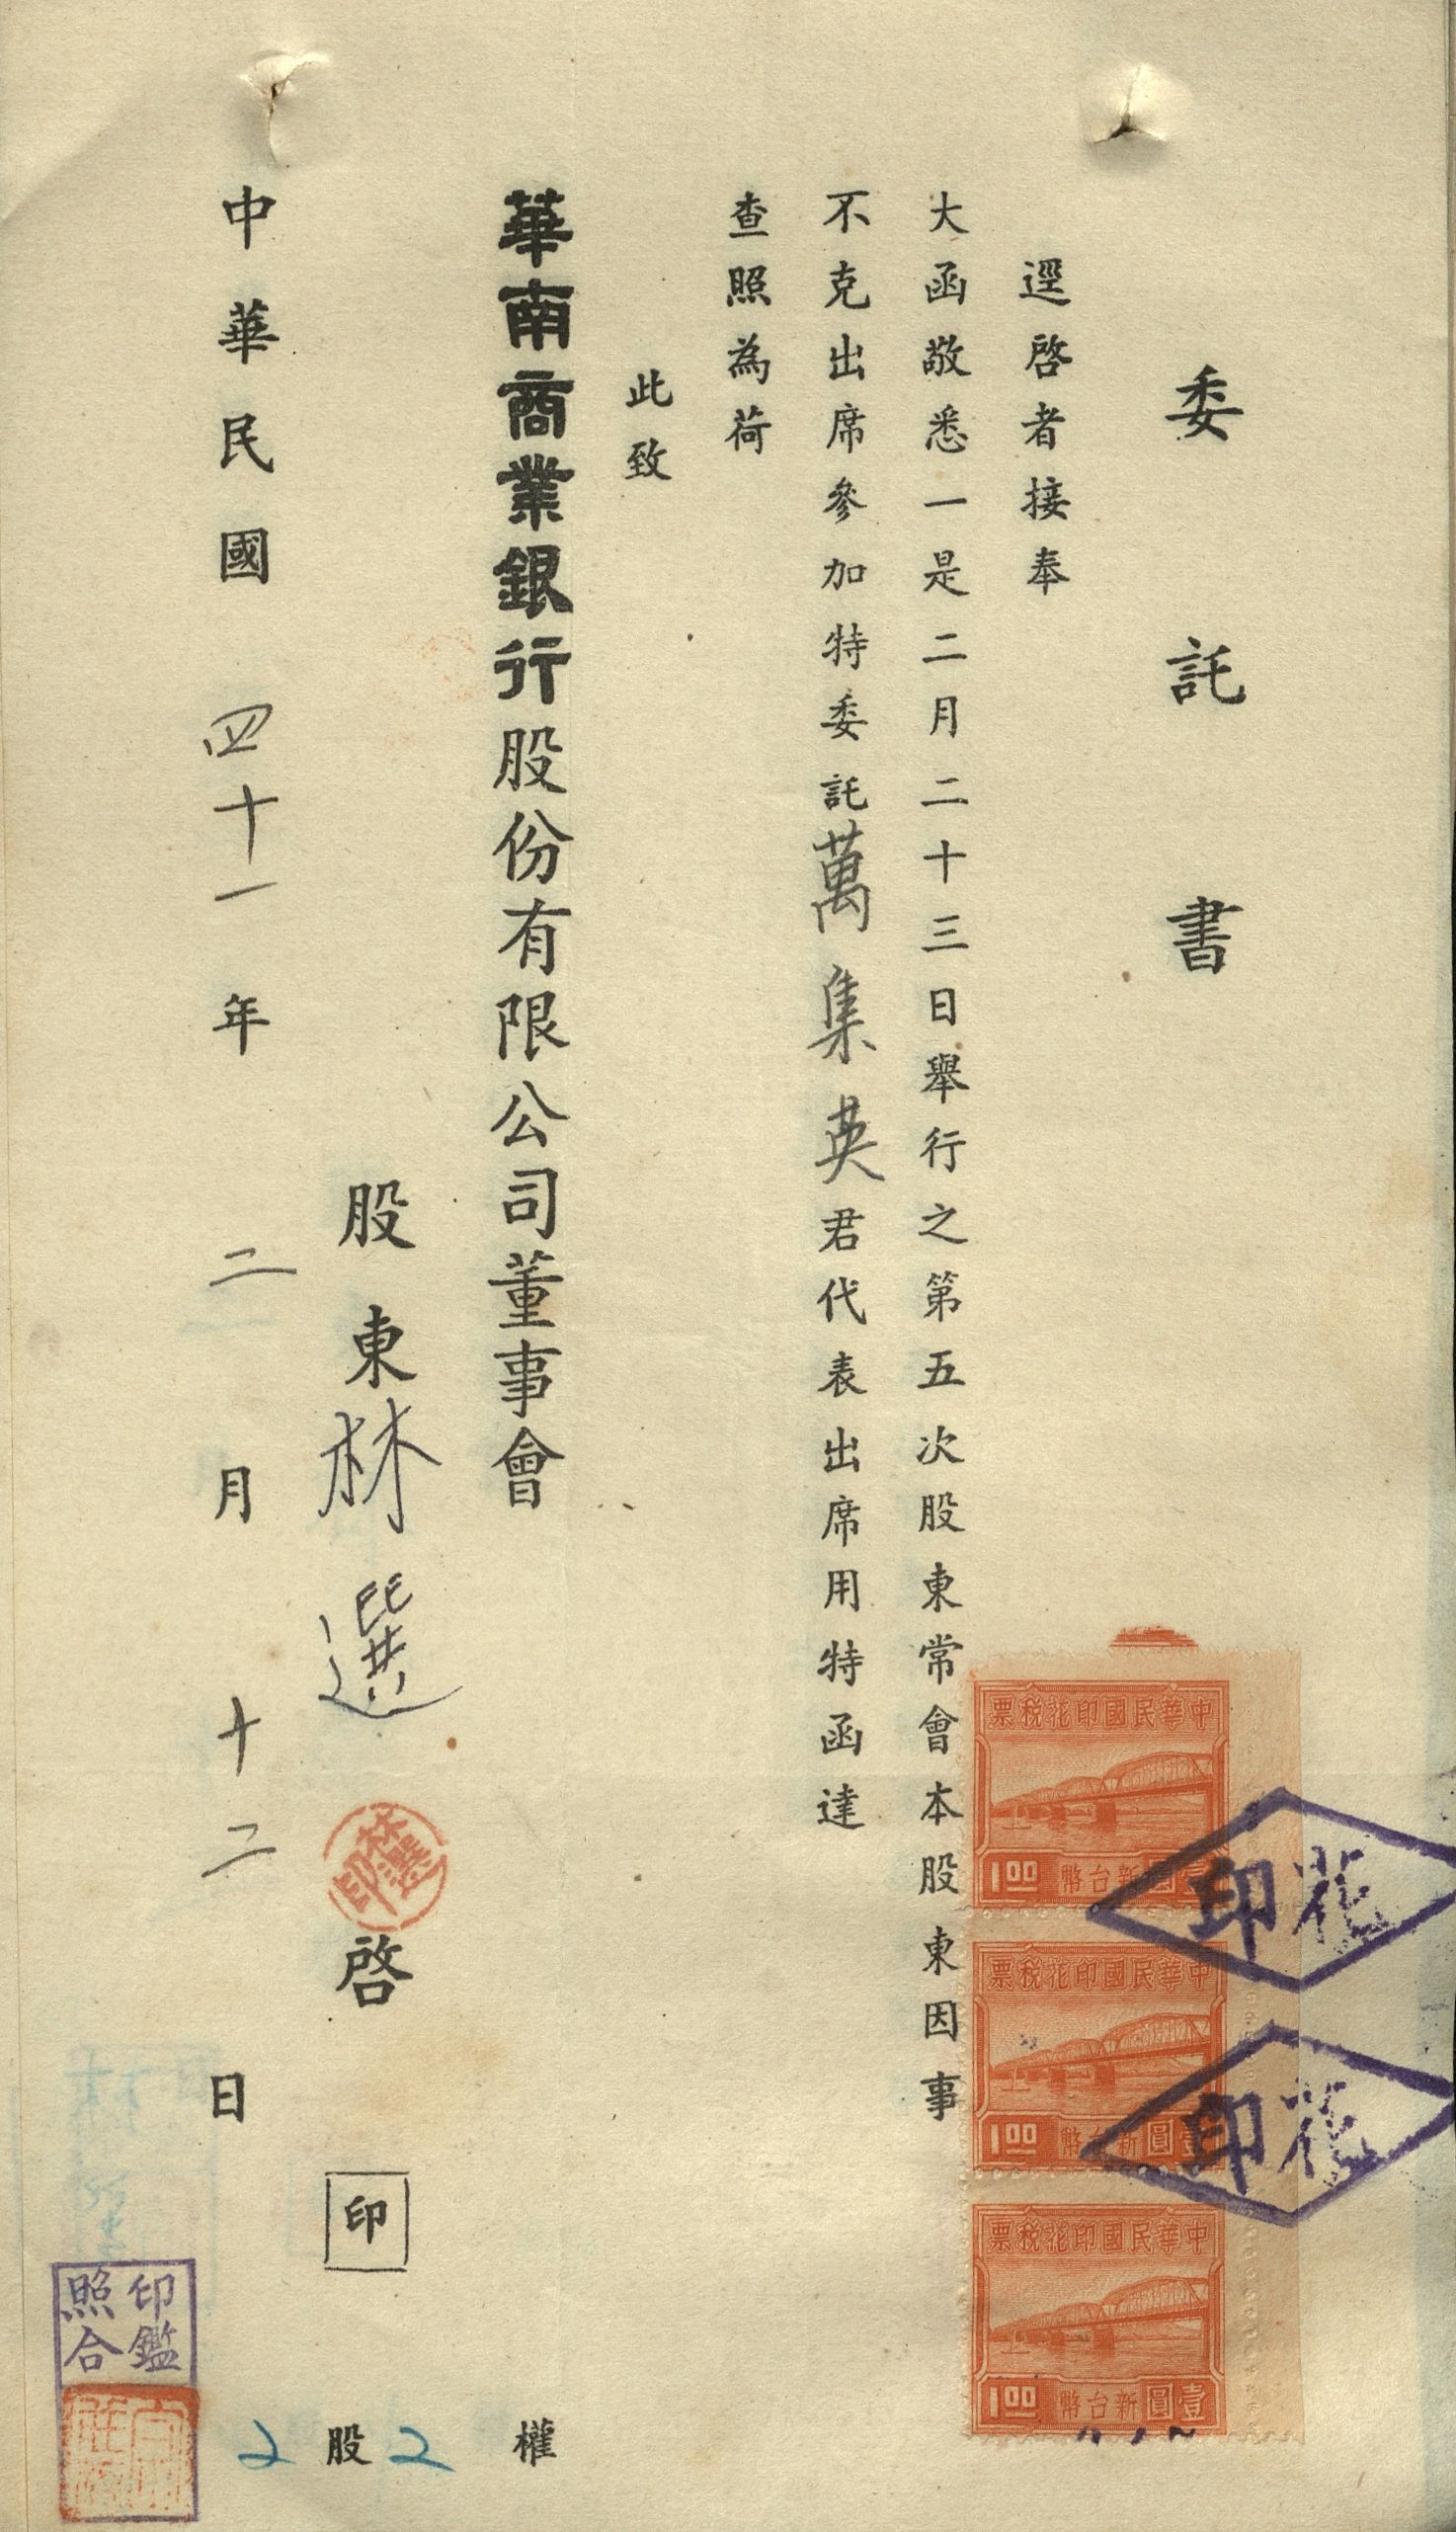 委託書
逕啓者接奉
大函敬悉一是二月二十三日舉行之第五次股東常會本股東因事
不克出席參加特委託萬集英君代表出席用特函達
查照為荷
此致
華南商業銀行股份有限公司董事會
股東林選啓 印
林選印
中華民國四十一年二月十二日
權
2 股 2
印鑑
照合
票稅花印國民華中
1.00 幣台新圓壹
印花
票稅花印國民華中
1.00 幣台新圓壹
印花
票稅花印國民華中
1.00 幣台新圓壹